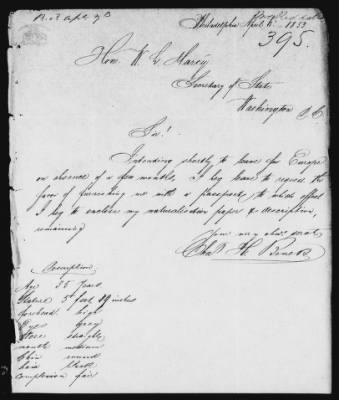 Philadelphia April 6th 1853
395.
Hon. W L Marcy
Secretary of State
Washington D.C.
Sir!
Intending shortly to leave for Europe
on absence of a few months, I beg leave to request the
favor of furnishing me with a passport, to which effect
I beg to enclose my naturalisation paper & description,
remaining
Your very obdt. servt.
Chas H.
Description
Age 35 Years
Stature 5 feet 9 inches
forehead high
Eyes Grey
Nose straight
mouth medium
Chin round
hair black
complexion fair